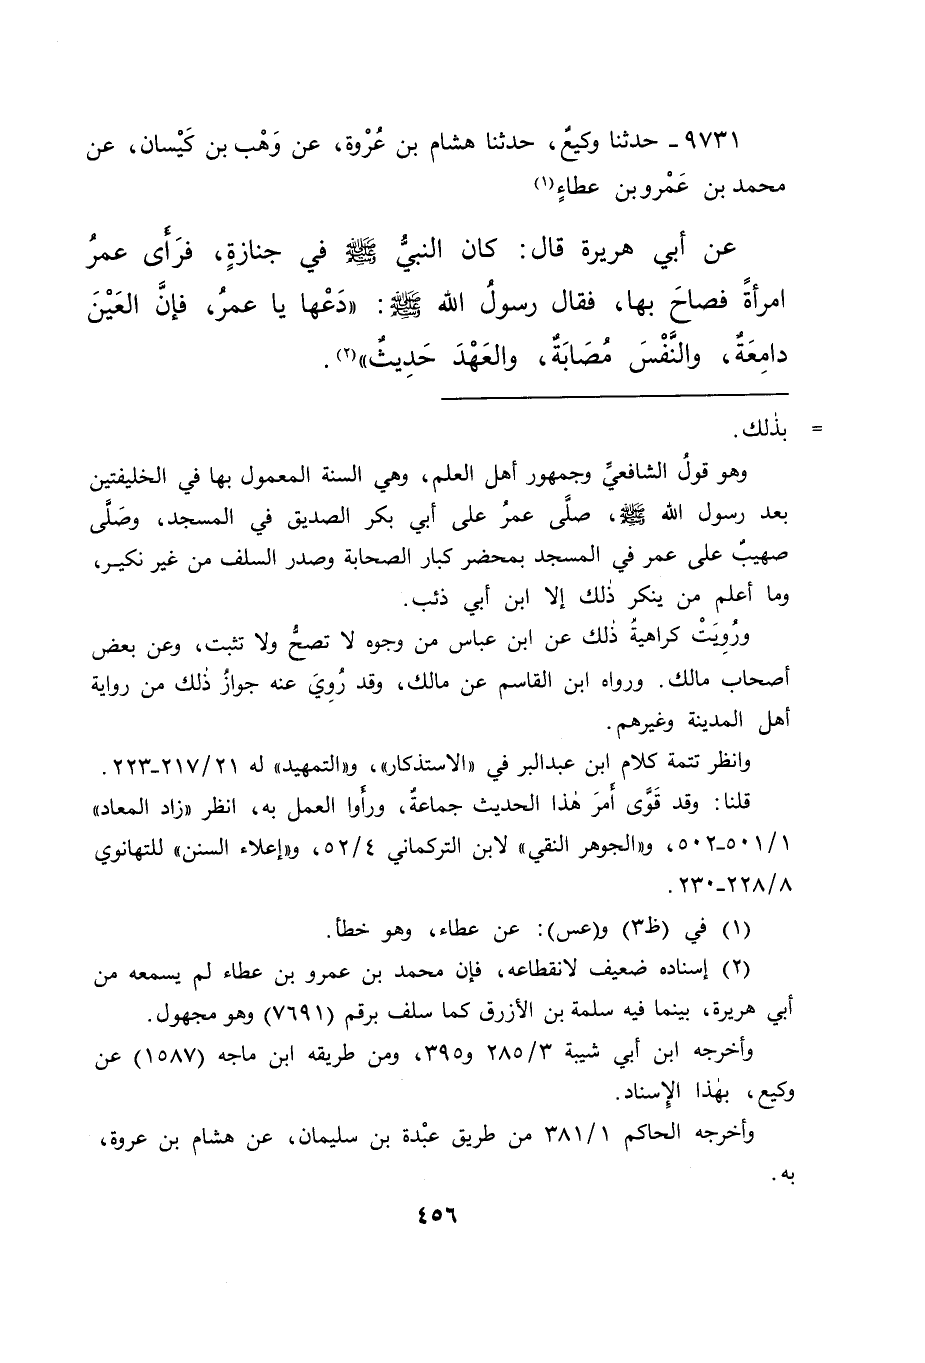 ٩٧٣١ـ حدثنا وكيعٌ، حدثنا هشام بن عُرْوة، عن وَهْب بن كَيْسان، عن
محمد بن عَمْرو بن عطاءٍ(١)
عن أبي هريرة قال: كان النبيُّ ﷺ في جنازةٍ، فرَأَى عمرُ
امرأةً فصاحَ بها، فقال رسولُ الله ﷺ: «دَعْها يا عمرُ، فإنَّ العَيْنَ
دامِعَةٌ، والنَّفْسَ مُصَابَةٌ، والعَهْدَ حَدِيثٌ»(٢).
= بذٰلك.
وهو قولُ الشافعيِّ وجمهور أهل العلم، وهي السنة المعمول بها في الخليفتين
بعد رسول الله ﷺ، صلَّى عمرُ على أبي بكر الصديق في المسجد، وصَلَّى
صهيبٌ على عمر في المسجد بمحضر كبار الصحابة وصدر السلف من غير نكير،
وما أعلم من ينكر ذٰلك إلا ابن أبي ذئب.
ورُوِيَتْ كراهيةُ ذٰلك عن ابن عباس من وجوه لا تصحُّ ولا تثبت، وعن بعض
أصحاب مالك. ورواه ابن القاسم عن مالك، وقد رُوِيَ عنه جوازُ ذٰلك من رواية
أهل المدينة وغيرهم.
وانظر تتمة كلام ابن عبدالبر في «الاستذكار»، و«التمهيد» له ٢١٧/٢١ـ٢٢٣.
قلنا: وقد قَوَّى أمرَ هٰذا الحديث جماعةٌ، ورأوا العمل به، انظر «زاد المعاد»
٥٠١/١ـ٥٠٢، و«الجوهر النقي» لابن التركماني ٥٢/٤، و«إعلاء السنن» للتهانوي
٢٢٨/٨ـ٢٣٠.
(١) في (ظ٣) و(عس): عن عطاء، وهو خطأ.
(٢) إسناده ضعيف لانقطاعه، فإن محمد بن عمرو بن عطاء لم يسمعه من
أبي هريرة، بينما فيه سلمة بن الأزرق كما سلف برقم (٧٦٩١) وهو مجهول.
وأخرجه ابن أبي شيبة ٢٨٥/٣ و٣٩٥، ومن طريقه ابن ماجه (١٥٨٧) عن
وكيع، بهٰذا الإسناد.
وأخرجه الحاكم ٣٨١/١ من طريق عبْدة بن سليمان، عن هشام بن عروة،
به.
٤٥٦